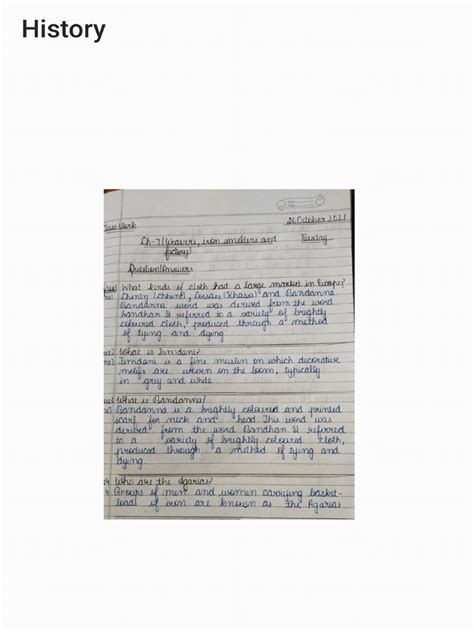 History
26 October 2021
Class Work
Ch-7 (Weavers, iron smelters and
Tuesday
factory)
Question/Answers
What kinds of cloth had a large market in Europe?
Chintz (Chhint), Cossaes (Khassa) and Bandanna
Bandanna word was derived from the word
bandhan. It referred to a variety of brightly
coloured cloth, produced through a method
of tying and dying
What is Jamdani?
Jamdani is a fine muslin on which decorative
motifs are woven on the loom, typically
in grey and white
What is Bandanna?
Bandanna is a brightly coloured and printed
scarf for neck and head. This word was
derived from the word Bandhan. It referred
to a variety of brightly coloured cloth,
produced through a method of tying and
dying.
Who are the Agarias?
Groups of men and women carrying basket-
loads of iron are known as the Agarias